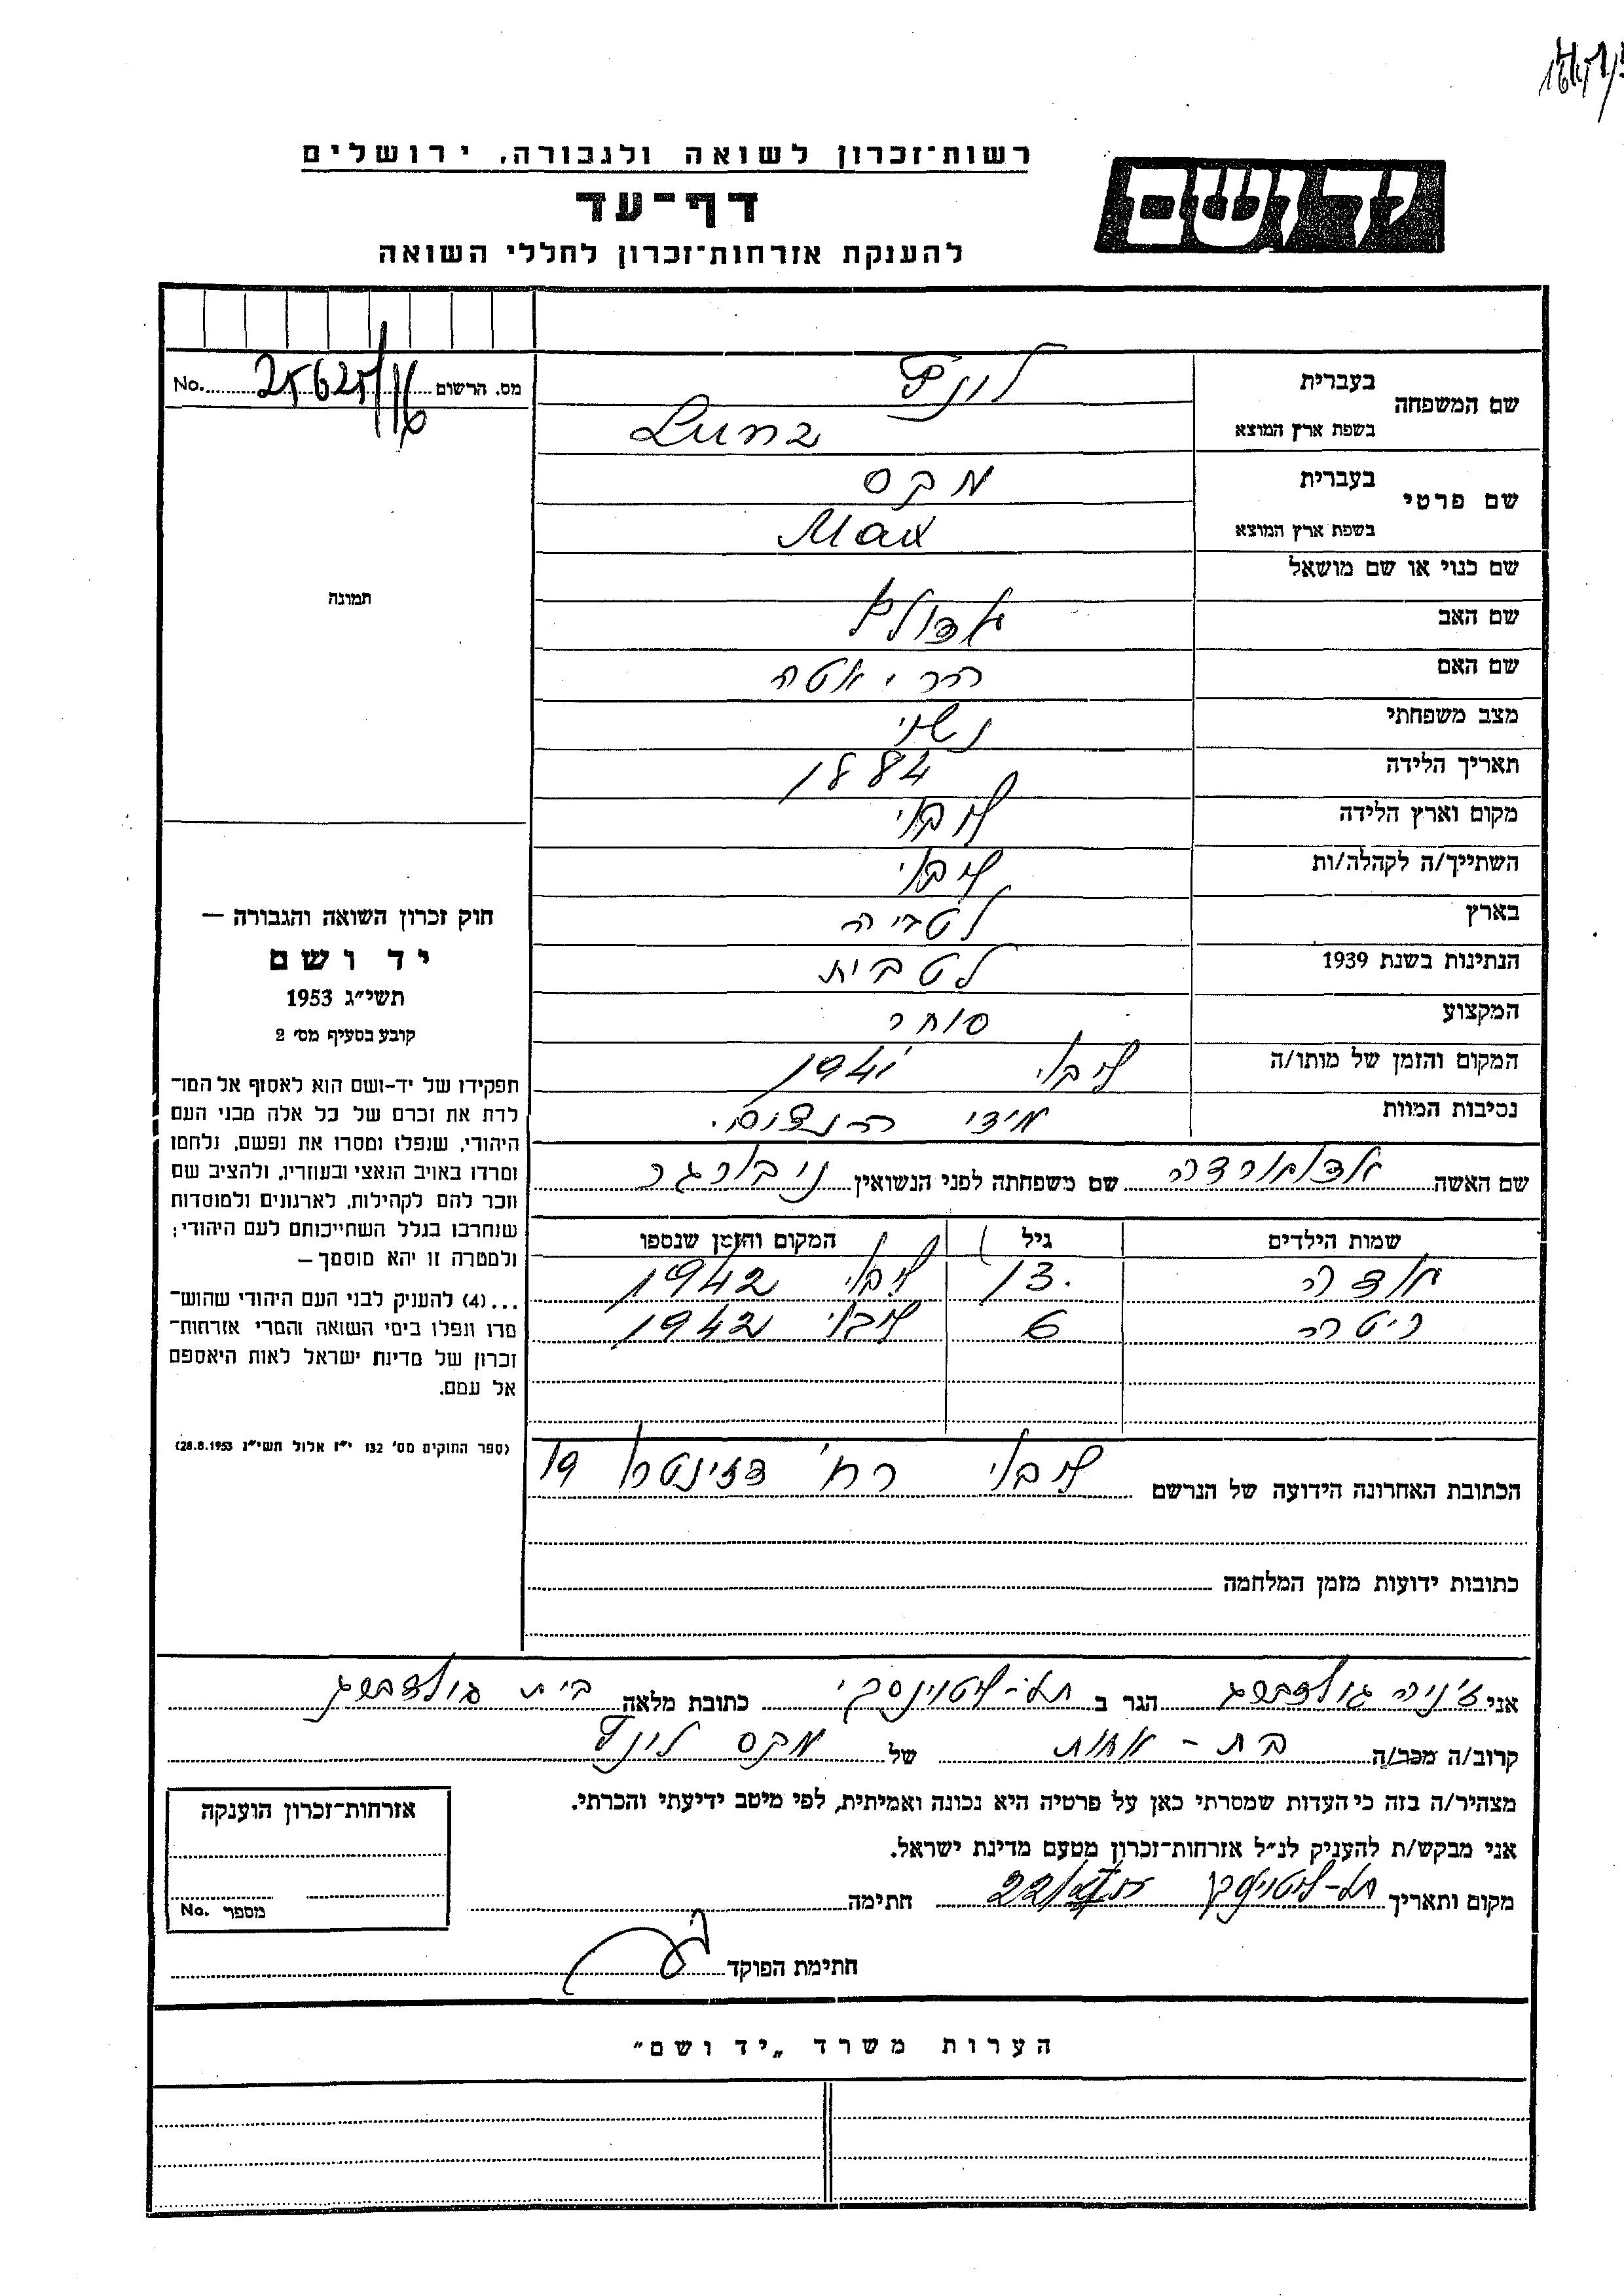 יד ושם
רשות־זכרון לשואה ולגבורה, ירושלים
דף־עד
להענקת אזרחות־זכרון לחללי השואה
מס. הרשום 25625/116 No.
שם המשפחה
בעברית לונץ
בשפת ארץ המוצא Lunz
שם פרטי
בעברית מקס
בשפת ארץ המוצא Max
שם כנוי או שם מושאל
שם האב אדולף
שם האם הריאטה
מצב משפחתי נשוי
תאריך הלידה 1884
מקום וארץ הלידה ליבוי
השתייך/ה לקהלה/ות ליבוי
בארץ לטביה
הנתינות בשנת 1939 לטבית
המקצוע סוחר
המקום והזמן של מותו/ה ליבוי 1941
נסיבות המוות מידי הנצים.
תמונה
חוק זכרון השואה והגבורה —
יד ושם
תשי״ג 1953
קובע בסעיף מס׳ 2
תפקידו של יד-ושם הוא לאסוף אל המו־
לדת את זכרם של כל אלה מבני העם
היהודי, שנפלו ומסרו את נפשם, נלחמו
ומרדו באויב הנאצי ובעוזריו, ולהציב שם
וזכר להם לקהילות, לארגונים ולמוסדות
שנחרבו בגלל השתייכותם לעם היהודי;
ולמטרה זו יהא מוסמך —
...(4) להעניק לבני העם היהודי שהוש־
מדו ונפלו בימי השואה והמרי אזרחות־
זכרון של מדינת ישראל לאות היאספם
אל עמם.
(ספר החוקים מס׳ 132 י״ז אלול תשי״ג 28.8.1953)
שם האשה שם משפחתה לפני הנשואין ניבורגר
שמות הילדים גיל המקום והזמן שנספו
אדה 13 ליבוי 1942
ריטה 6 ליבוי 1942
הכתובת האחרונה הידועה של הנרשם ליבוי רח׳ דזינטרו 19
כתובות ידועות מזמן המלחמה
אני ז׳ניה גולדברג הגר ב תל-ליטוינסקי כתובת מלאה בית גולדברג
קרוב/ה מכר/ה בת - אחות של מקס לונץ
מצהיר/ה בזה כי העדות שמסרתי כאן על פרטיה היא נכונה ואמיתית, לפי מיטב ידיעתי והכרתי.
אני מבקש/ת להעניק לנ״ל אזרחות־זכרון מטעם מדינת ישראל.
מקום ותאריך תל-ליטוינסקי חתימה
חתימת הפוקד
אזרחות־זכרון הוענקה
מספר No.
הערות משרד „יד ושם״